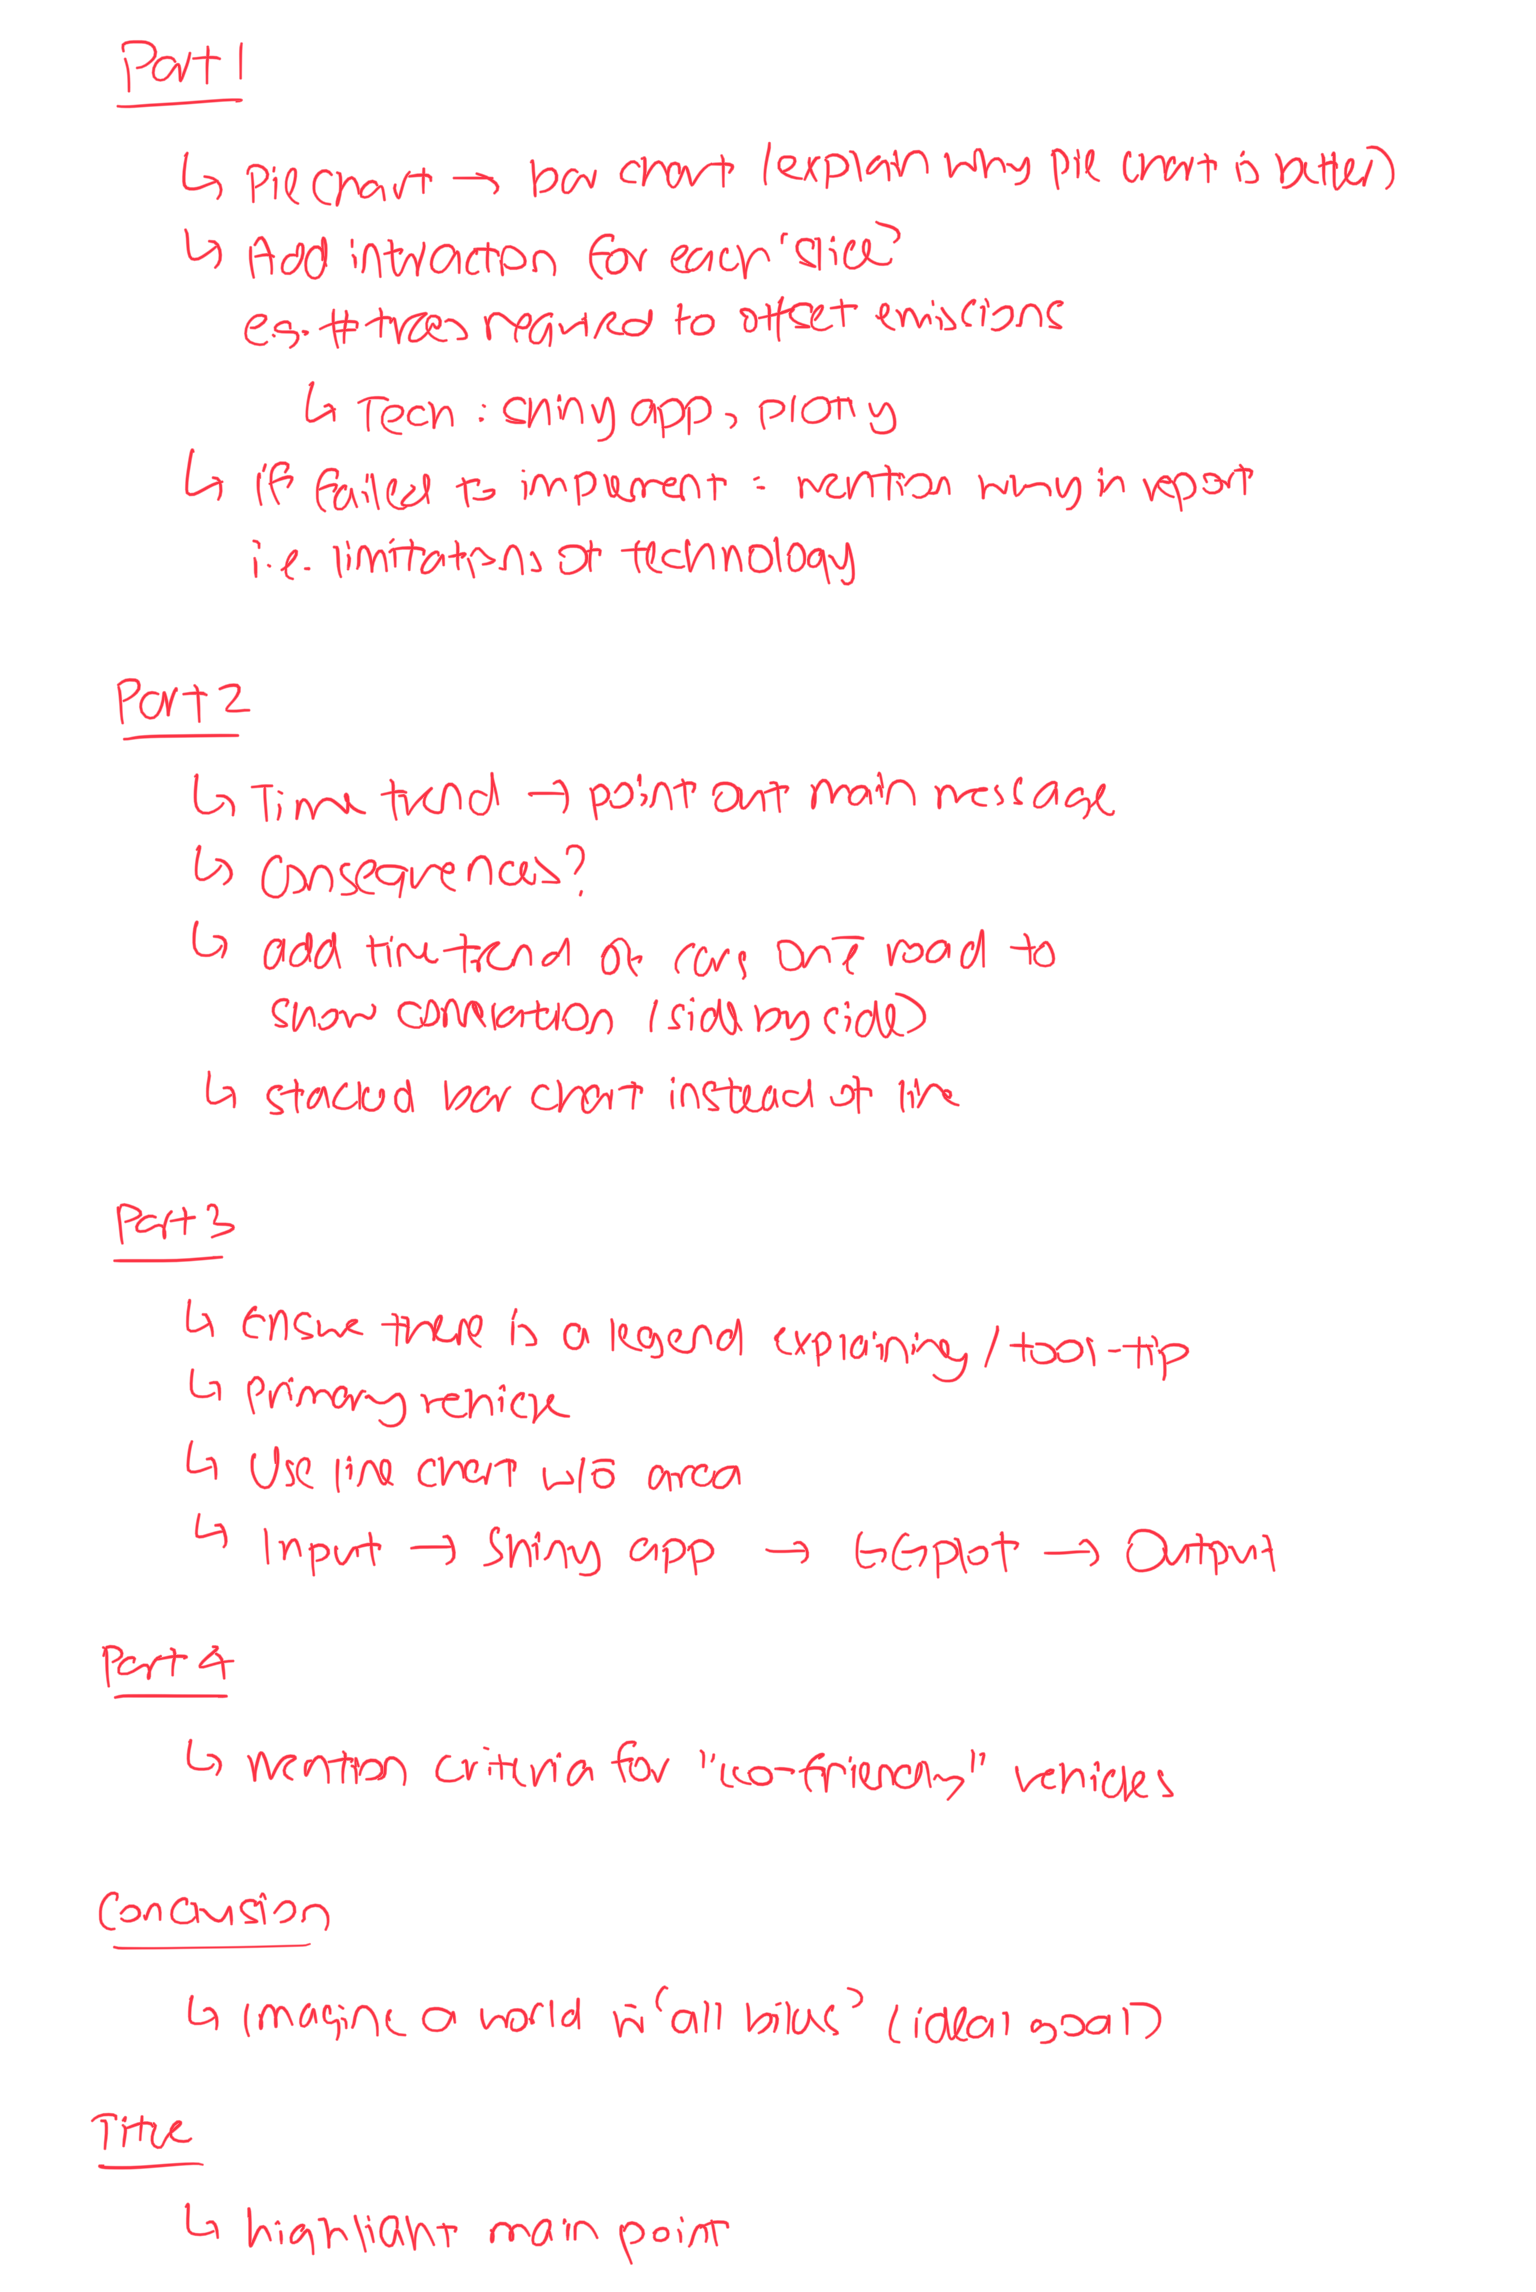 Part 1
↳ Pie chart → bar chart (explain why pie chart is better)
↳ Add interaction for each 'slice'
eg. # trees required to offset emissions
↳ Tech : shiny app, plotly
↳ if failed to implement : mention why in report
i.e. limitations of technology
Part 2
↳ Time trend → point out main message
↳ Consequences?
↳ add time trend of cars on the road to
show correlation (side by side)
↳ stacked bar chart instead of line
Part 3
↳ Ensure there is a legend explaining / tool-tip
↳ Primary vehicle
↳ Use line chart w/o area
↳ Input → Shiny app → GGplot → Output
Part 4
↳ mention criteria for "eco-friendly" vehicles
Conclusion
↳ imagine a world w 'all bikes' (ideal goal)
Title
↳ highlight main point